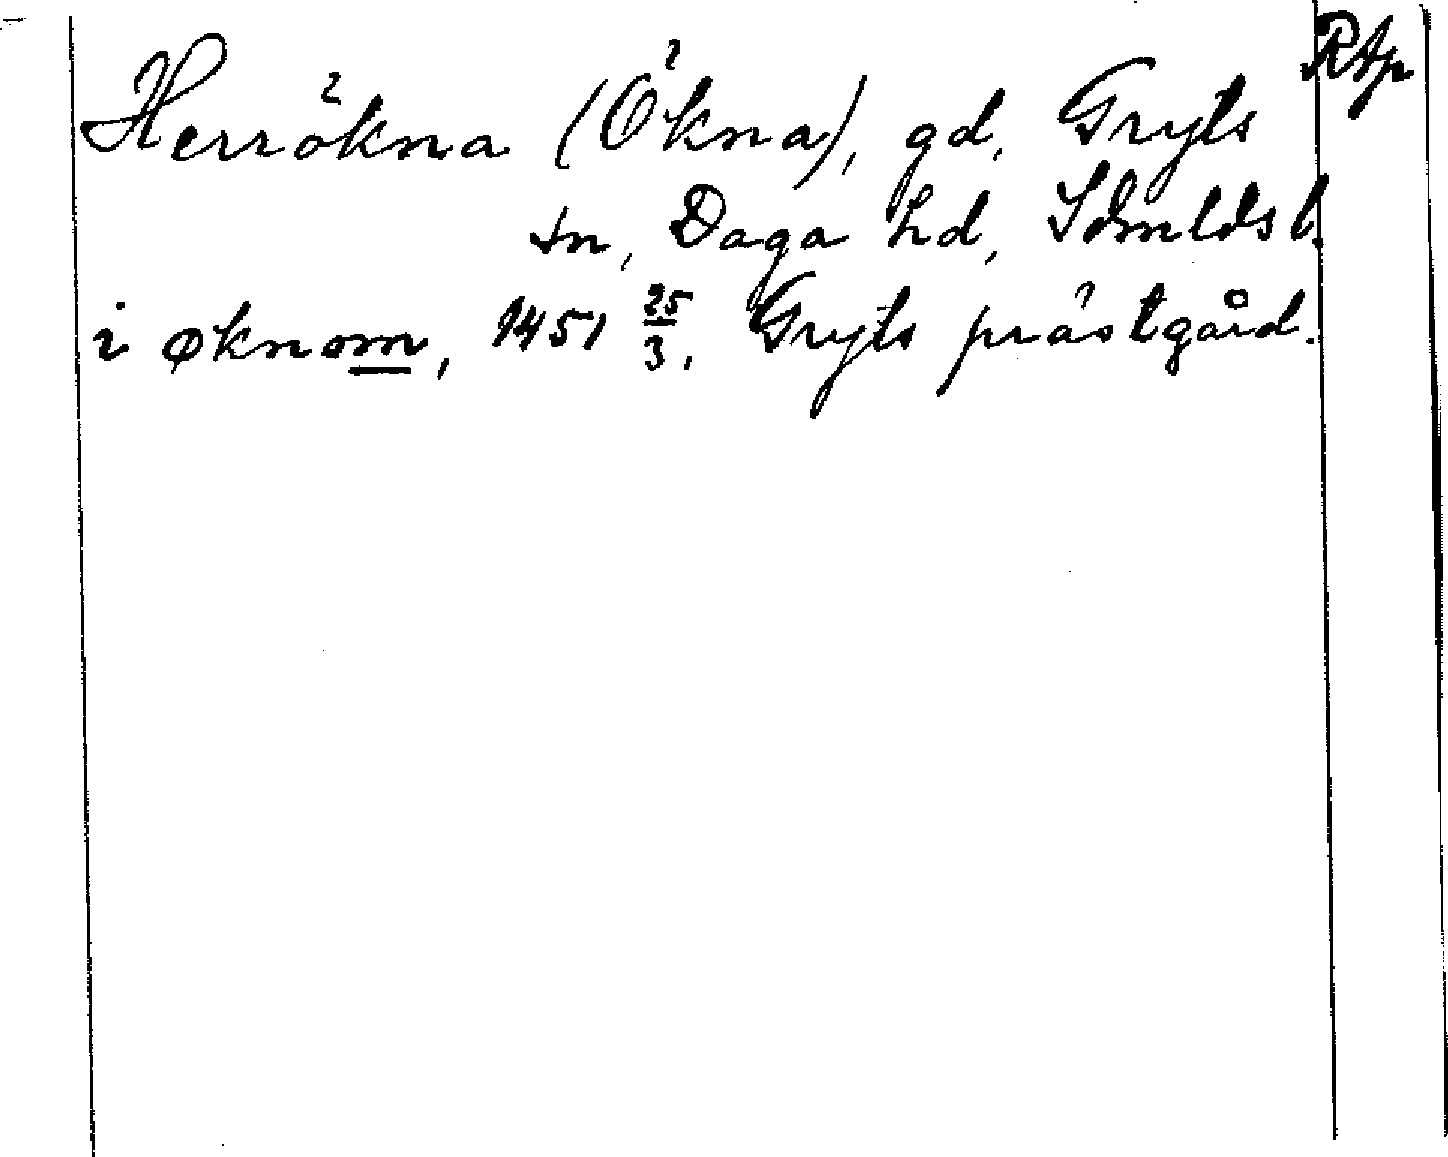 Herrökna (Ökna), gd, Gryts
sn, Daga hd, Sdmlds l.
i øknom, 1451 25/3, Gryts prästgård.
RAp